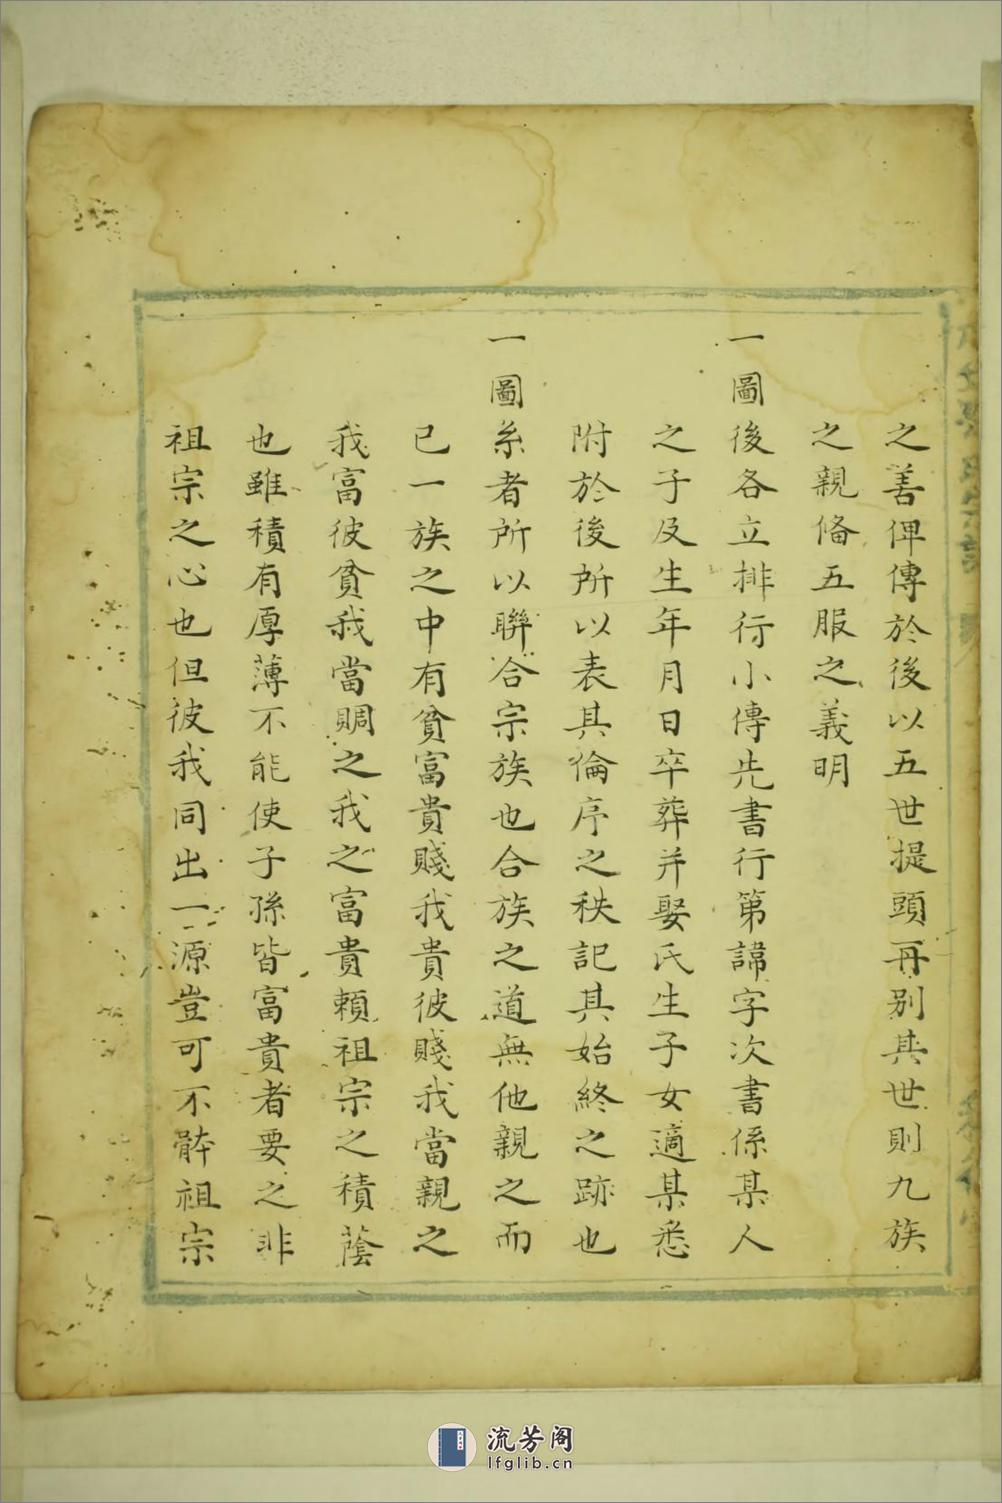 之善俾傳於後以五世提頭再别其世則九族
之親俻五服之義明
一圖後各立排行小傳先書行第諱字次書係某人
之子及生年月日卒葬并娶氏生子女適某悉
附於後所以表其倫序之秩記其始終之跡也
一圖系者所以聮合宗族也合族之道無他親之而
已一族之中有貧富貴賤我貴彼賤我當親之
我富彼貧我當賙之我之富貴頼祖宗之積蔭
也雖積有厚薄不能使子孫皆富貴者要之非
祖宗之心也但彼我同出一源豈可不骵祖宗
流芳阁
lfglib.cn